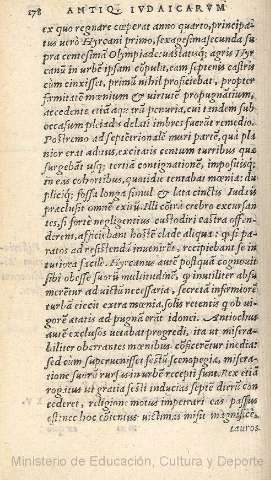 178 ANTIQ. IVDAICARVM
ex quo regnare cœperat anno quarto, principa
tus uerò Hyrcani primo, sexagesima secunda su
pra centesima Olympiade: uastatisq; agris Hyr
canũ in urbẽ ipsam cõpulit, eam septenis castris
cùm cinxisset, primũ nihil proficiebat, propter
firmitatẽ mœnium & uirtutẽ propugnatium,
accedente etiã aquarũ penuria, cui tandem sub
occasum pleiadis delati imbres fuerãt remedio.
Postremo ad septẽtrionalẽ muri partẽ, quà pla
nior erat aditus, excitatis centum turribus quæ
surgebãt usq; tertiã contignationẽ, impositisq;
in eas cohortibus, quotidie tentabat mœnia: du
pliciq; fossa longa simul & lata cinctis Iudæis
præclusit omnẽ exitũ. Illi cõtrà crebro excursan
tes, si forte negligentius custodiri castra offen
derent, afficiebant hostẽ clade aliqua: q si pa
ratos ad resistendũ inuenirẽt, recipiebant se in
tutiora facile. Hyrcanus aurẽ postquã cognouit
sibi obesse suorũ multitudinẽ, & inutiliter absu
merẽtur aduliũ necessaria, secreta infirmiorẽ
turbã eiecit extra mœnia, solis retentis q ob ui
gorẽ ætatis ad pugnã erãt idonei. Antiochus
autẽ exclusos uetabat progredi, ita ut misera-
biliter oberrantes mœnibus cõficerẽtur inedia:
sed cùm superuenisset festũ scenopegia, misera-
tione suorũ rursus in urbẽ recepti sunt. Rex etiã
rogatus ut gratia festi inducias septẽ dierũ con
cederet, religionis motus impetrari eas passus
est: nec hoc cõtentus uictimas misit magnificè,
tauros.
Ministerio de Educación, Cultura y Deporte